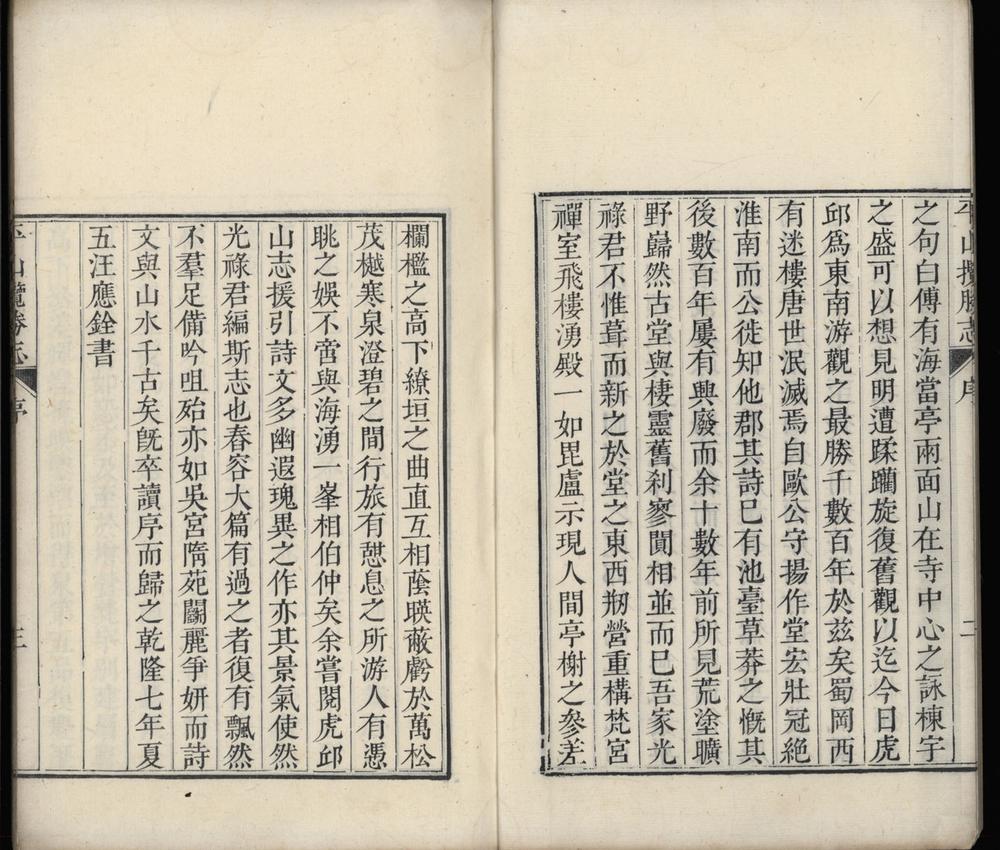 平山攬勝志 序 二
之句白傅有海當亭兩面山在寺中心之詠棟宇
之盛可以想見明遭蹂躪旋復舊觀以迄今日虎
邱爲東南游觀之最勝千數百年於茲矣蜀岡西
有迷樓唐世泯滅焉自歐公守揚作堂宏壯冠絶
淮南而公徙知他郡其詩已有池臺草莽之慨其
後數百年屢有興廢而余十數年前所見荒塗曠
野巋然古堂與棲靈舊刹寥闃相並而已吾家光
祿君不惟葺而新之於堂之東西剏營重構梵宮
禪室飛樓湧殿一如毘盧示現人間亭榭之參差
欄檻之高下繚垣之曲直互相蔭暎蔽虧於萬松
茂樾寒泉澄碧之間行旅有憇息之所游人有憑
眺之娛不啻與海湧一峯相伯仲矣余嘗閱虎邱
山志援引詩文多幽遐瑰異之作亦其景氣使然
光祿君編斯志也春容大篇有過之者復有飄然
不羣足備吟咀殆亦如吳宮隋苑鬭麗爭妍而詩
文與山水千古矣旣卒讀序而歸之乾隆七年夏
五汪應銓書
平山攬勝志 序 三